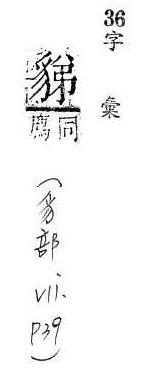 36字彙
同廌
(豸部 vii. p39)